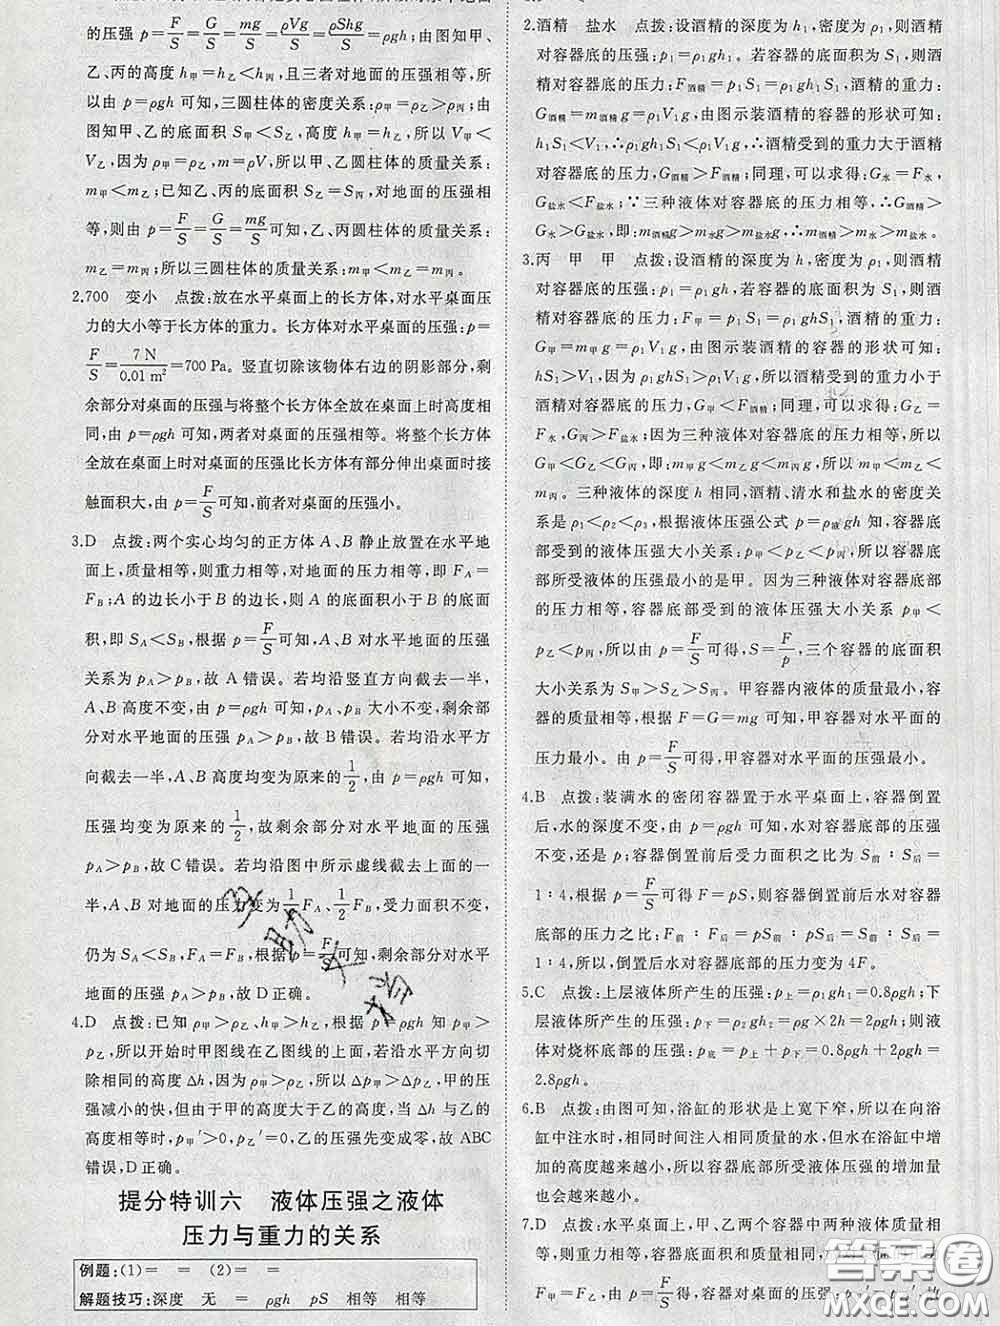 的压强 p=F/S=G/S=mg/S=ρVg/S=ρShg/S=ρgh;由图知甲、
乙、丙的高度 h甲<h乙<h丙,且三者对地面的压强相等,所
以由 p=ρgh 可知,三圆柱体的密度关系:ρ甲>ρ乙>ρ丙;由
图知甲、乙的底面积 S甲<S乙,高度 h甲<h乙,所以 V甲<
V乙,因为 ρ甲>ρ乙,m=ρV,所以甲、乙圆柱体的质量关系:
m甲<m乙;已知乙、丙的底面积 S乙=S丙,对地面的压强相
等,则由 p=F/S=G/S=mg/S 可知,乙、丙圆柱体的质量关系:
m乙=m丙;所以三圆柱体的质量关系:m甲<m乙=m丙。
2.700 变小 点拨:放在水平桌面上的长方体,对水平桌面压
力的大小等于长方体的重力。长方体对水平桌面的压强:p=
F/S=7 N/0.01 m²=700 Pa。竖直切除该物体右边的阴影部分,剩
余部分对桌面的压强与将整个长方体全放在桌面上时高度相
同,由 p=ρgh 可知,两者对桌面的压强相等。将整个长方体
全放在桌面上时对桌面的压强比长方体有部分伸出桌面时接
触面积大,由 p=F/S可知,前者对桌面的压强小。
3.D 点拨:两个实心均匀的正方体 A、B 静止放置在水平地
面上,质量相等,则重力相等,对地面的压力相等,即 FA=
FB;A 的边长小于 B 的边长,则 A 的底面积小于 B 的底面
积,即 SA<SB,根据 p=F/S可知,A、B 对水平地面的压强
关系为 pA>pB,故 A 错误。若均沿竖直方向截去一半,
A、B 高度不变,由 p=ρgh 可知,pA、pB 大小不变,剩余部
分对水平地面的压强 pA>pB,故 B 错误。若均沿水平方
向截去一半,A、B 高度均变为原来的1/2,由 p=ρgh 可知,
压强均变为原来的1/2,故剩余部分对水平地面的压强
pA>pB,故 C 错误。若均沿图中所示虚线截去上面的一
半,A、B 对地面的压力变为1/2FA、1/2FB,受力面积不变,
仍为 SA<SB,FA=FB,根据 p=F/S可知,剩余部分对水平
地面的压强 pA>pB,故 D 正确。
4.D 点拨:已知 ρ甲>ρ乙、h甲>h乙,根据 p=ρgh 知 p甲>
p乙,所以开始时甲图线在乙图线的上面,若沿水平方向切
除相同的高度 Δh,因为 ρ甲>ρ乙,所以 Δp甲>Δp乙,甲的压
强减小的快,但由于甲的高度大于乙的高度,当 Δh 与乙的
高度相等时,p甲′>0,p乙′=0,乙的压强先变成零,故 ABC
错误,D 正确。
提分特训六 液体压强之液体
压力与重力的关系
例题:(1)= = (2)= =
解题技巧:深度 无 = ρgh pS 相等 相等
2.酒精 盐水 点拨:设酒精的深度为 h1,密度为 ρ1,则酒精
对容器底的压强:p1=ρ1gh1。若容器的底面积为 S1,则酒精
对容器底的压力:F酒精=p1S1=ρ1gh1S1,酒精的重力:
G酒精=m酒精g=ρ1V1g,由图示装酒精的容器的形状可知:
h1S1<V1,∴ρ1gh1S1<ρ1V1g,∴酒精受到的重力大于酒精
对容器底的压力,G酒精>F酒精;同理,可以求得:G水=F水,
G盐水<F盐水;∵三种液体对容器底的压力相等,∴G酒精>
G水>G盐水,即:m酒精g>m水g>m盐水g,∴m酒精>m水>m盐水。
3.丙 甲 甲 点拨:设酒精的深度为 h,密度为 ρ1,则酒精对
容器底的压强:p1=ρ1gh。若容器的底面积为 S1,则酒精对
容器底的压力:F酒精=p1S1=ρ1ghS1,酒精的重力:
G甲=m甲g=ρ1V1g,由图示装酒精的容器的形状可知:
hS1>V1,因为 ρ1ghS1>ρ1V1g,所以酒精受到的重力小于
酒精对容器底的压力,G甲<F酒精;同理,可以求得:G乙=
F水,G丙>F盐水;因为三种液体对容器底的压力相等,所以
G甲<G乙<G丙,即:m甲g<m乙g<m丙g,所以 m甲<m乙<
m丙。三种液体的深度 h 相同,酒精、清水和盐水的密度关
系是 ρ1<ρ2<ρ3,根据液体压强公式 p=ρ液gh 知,容器底
部受到的液体压强大小关系:p甲<p乙<p丙,所以容器底
部所受液体的压强最小的是甲。因为三种液体对容器底部
的压力相等,容器底部受到的液体压强大小关系 p甲<
p乙<p丙,所以由 p=F/S可得,S=F/p,三个容器的底面积
大小关系为 S甲>S乙>S丙。甲容器内液体的质量最小,容
器的质量相等,根据 F=G=mg 可知,甲容器对水平面的
压力最小。由 p=F/S可得,甲容器对水平面的压强最小。
4.B 点拨:装满水的密闭容器置于水平桌面上,容器倒置
后,水的深度不变,由 p=ρgh 可知,水对容器底部的压强
不变,还是 p;容器倒置前后受力面积之比为 S前∶S后=
1∶4,根据 p=F/S可得 F=pS,则容器倒置前后水对容器
底部的压力之比:F前∶F后=pS前∶pS后=S前∶S后=
1∶4,所以,倒置后水对容器底部的压力变为 4F。
5.C 点拨:上层液体所产生的压强:p上=ρ1gh1=0.8ρgh;下
层液体所产生的压强:p下=ρ2gh2=ρg×2h=2ρgh;则液
体对烧杯底部的压强:p底=p上+p下=0.8ρgh+2ρgh=
2.8ρgh。
6.B 点拨:由图可知,浴缸的形状是上宽下窄,所以在向浴
缸中注水时,相同时间注入相同质量的水,但水在浴缸中增
加的高度越来越小,所以容器底部所受液体压强的增加量
也会越来越小。
7.D 点拨:水平桌面上,甲、乙两个容器中两种液体质量相
等,则重力相等,容器的底面积和质量相同,根据 F=
答案卷
MXQE.COM